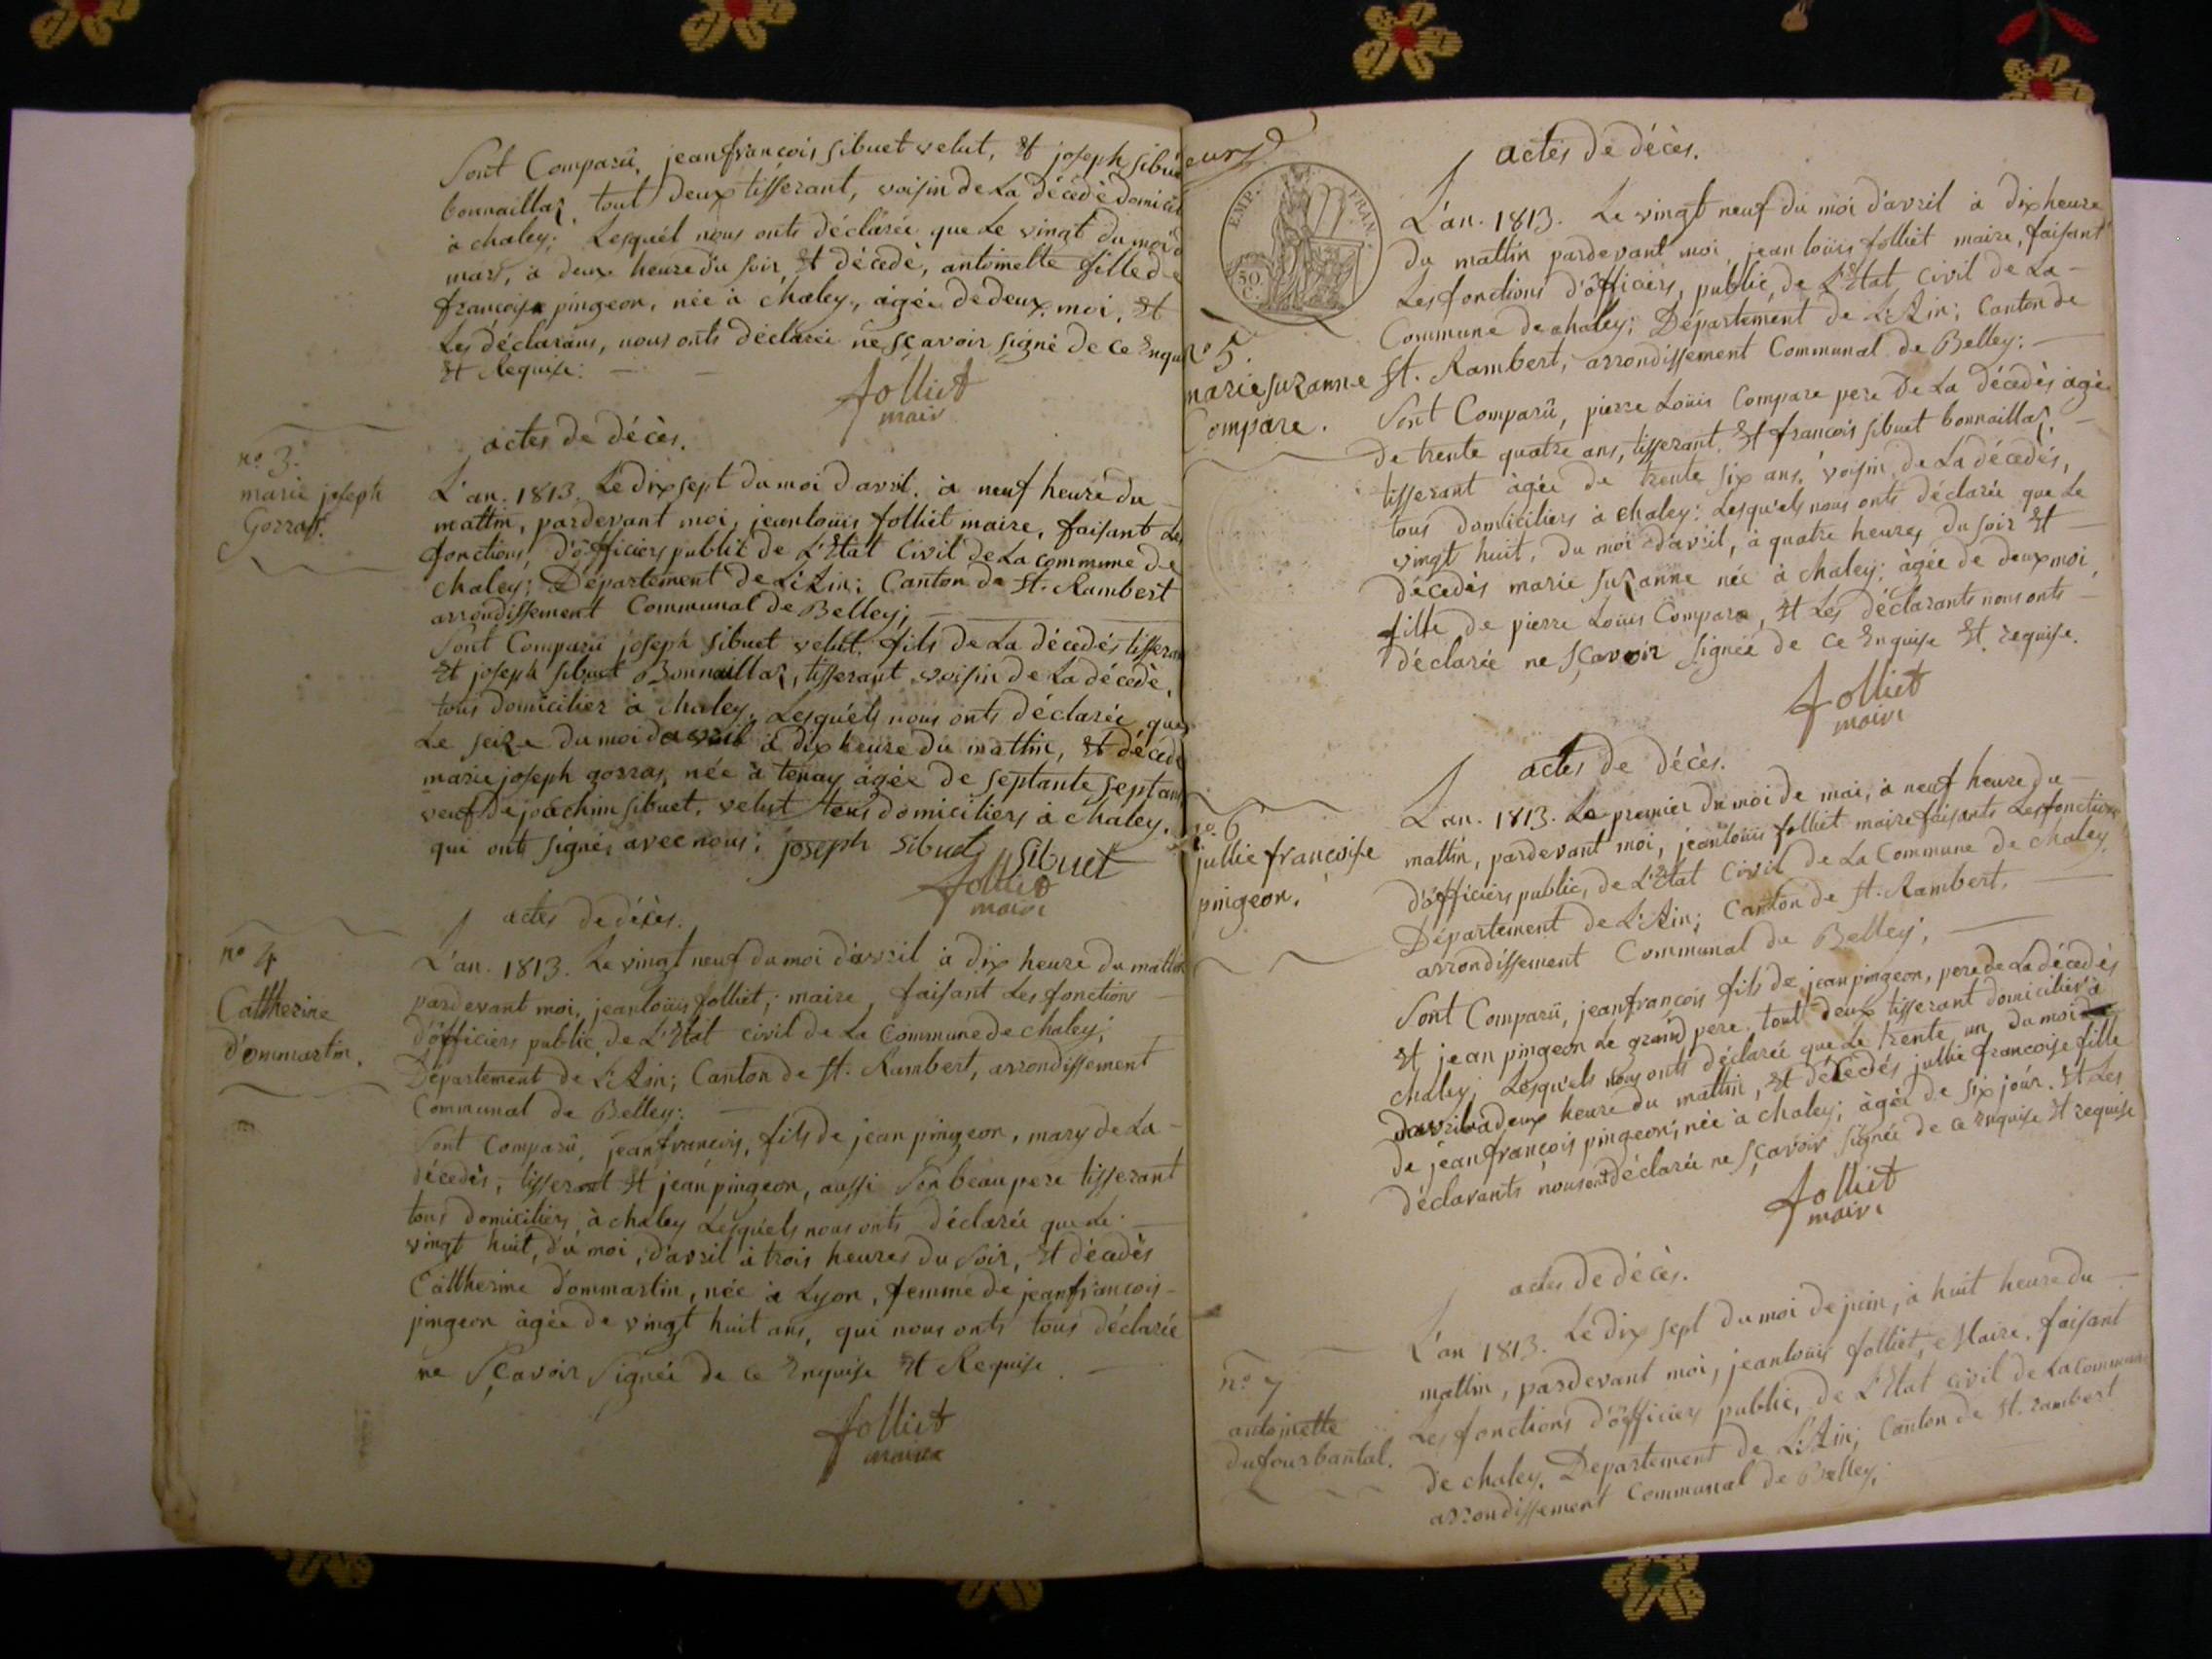 Sont Comparû, jean françois sibuet velut, Et joseph sibuet
bonnaillaz, tout deux tisserant, voisin de La décédé domicil
à chaley; Lesquél nous onts déclarée que Le vingt du moi d
mars, à deux heure du soir, Et décédé, antoinette fille de
françoise pingeon, née à chaley, agée de deux moi, Et
Les déclarans, nous onts déclarée ne sçavoir signé de ce Enquise
Et Requise:
folliet
maire
actes de décès.
no. 3.
marie joseph
Gorras.
L'an. 1813. Le dix sept du moi d'avril. à neuf heure du
mattin, pardevant moi, jean loüis folliet maire, faisant Les
fonctions, d'officiers public de L'Etat Civil de La commune de
chaley; Département de L'Ain; Canton de St. Rambert
arrondissement Communal de Belley;
Sont Comparû joseph sibuet velut. fils de La décédés tisseran
Et joseph sibuet Bonnaillaz, tisserant voisin de La décédé,
tous domicilier à chaley, Lesquéls nous onts déclarée que
Le seize du moi d'avril à dix heure du mattin, Et décédé
marie joseph gorras, née à tenay âgée de septante sept ans
veuf de joachim sibuet, velut tous domiciliers à chaley,
qui ont signés avec nous; joseph sibuet sibuet
folliet
maire
actes de décès.
no 4
Catttherine
d'ommartin.
L'an. 1813. Le vingt neuf du moi d'avril à dix heure du mattin
pardevant moi, jean loüis folliet, maire, faisant Les fonctions
d'officiers public, de L'Etat civil de La Commune de chaley;
Département de L'Ain; Canton de St. Rambert, arrondissement
Communal de Belley;
Sont Comparû, jean françois, fils de jean pingeon, mary de La
décédés, tisserant Et jean pingeon, aussi Son beau pere tisserant
tous domiciliers à chaley Lesquéls nous onts déclarée que Le
vingt huit, du moi, d'avril à trois heures du soir, Et décédés
Catttherine d'ommartin, née à Lyon, femme de jean françois
pingeon âgée de vingt huit ans, qui nous onts tous déclarée
ne Sçavoir Signée de ce Enquise Et Requise.
folliet
maire
EMP. FRAN.
50 C.
actes de décès.
no 5.
marie suzanne
Compare.
L'an. 1813. Le vingt neuf du moi d'avril à dix heure
du mattin pardevant moi, jean loüis folliet maire, faisant
Les fonctions d'officiers, public, de L'Etat civil de La
Commune de chaley; Département de L'Ain; Canton de
St. Rambert; arrondissement Communal de Belley;
Sont Comparû, pierre Loüis Compare pere De La décédés agée
de trente quatre ans, tisserant. Et françois sibuet bonnaillaz,
tisserant âgée de trente six ans, voisin de La décédés,
tous domiciliers à chaley; Lesquels nous onts déclarée que Le
vingt huit, du moi d'avril, à quatre heures du soir Et
décédés marie suzanne née à chaley; âgée de deux moi,
fille de pierre Loüis Compare, Et Les déclarants nous onts
déclarée ne sçavoir signée de ce Enquise Et requise.
folliet
maire
actes de décès.
no. 6
jullie françoise
pingeon.
L'an. 1813. Le premier du moi de mai, à neuf heure du
mattin, pardevant moi, jean loüis folliet maire faisants Les fonctions
d'officiers public, de L'Etat Civil de La Commune de chaley
Département de L'Ain; Canton de St. Rambert,
arrondissement Communal de Belley;
Sont Comparû, jean françois fils de jean pingeon, pere de La décédés
Et jean pingeon Le grand pere, tout deux tisserant domicilier à
chaley; Lesquels nous onts déclarée que Le trente un du moi
d'avril à deux heure du mattin, Et décédés jullie françoise fille
de jean françois pingeon, née à chaley; âgée de six jour. Et Les
déclarants nous ont déclarée ne sçavoir signée de ce Enquise Et requise
folliet
maire
actes de décès.
no 7
antoinette
dufour bantal.
L'an 1813. Le dix sept du moi de juin, à huit heure du
mattin, pardevant moi, jean loüis folliet, Maire, faisant
Les fonctions d'officiers public, de L'Etat civil de La Commune
de chaley, Département de L'Ain; Canton de St. rambert
arrondissement Communal de Belley;